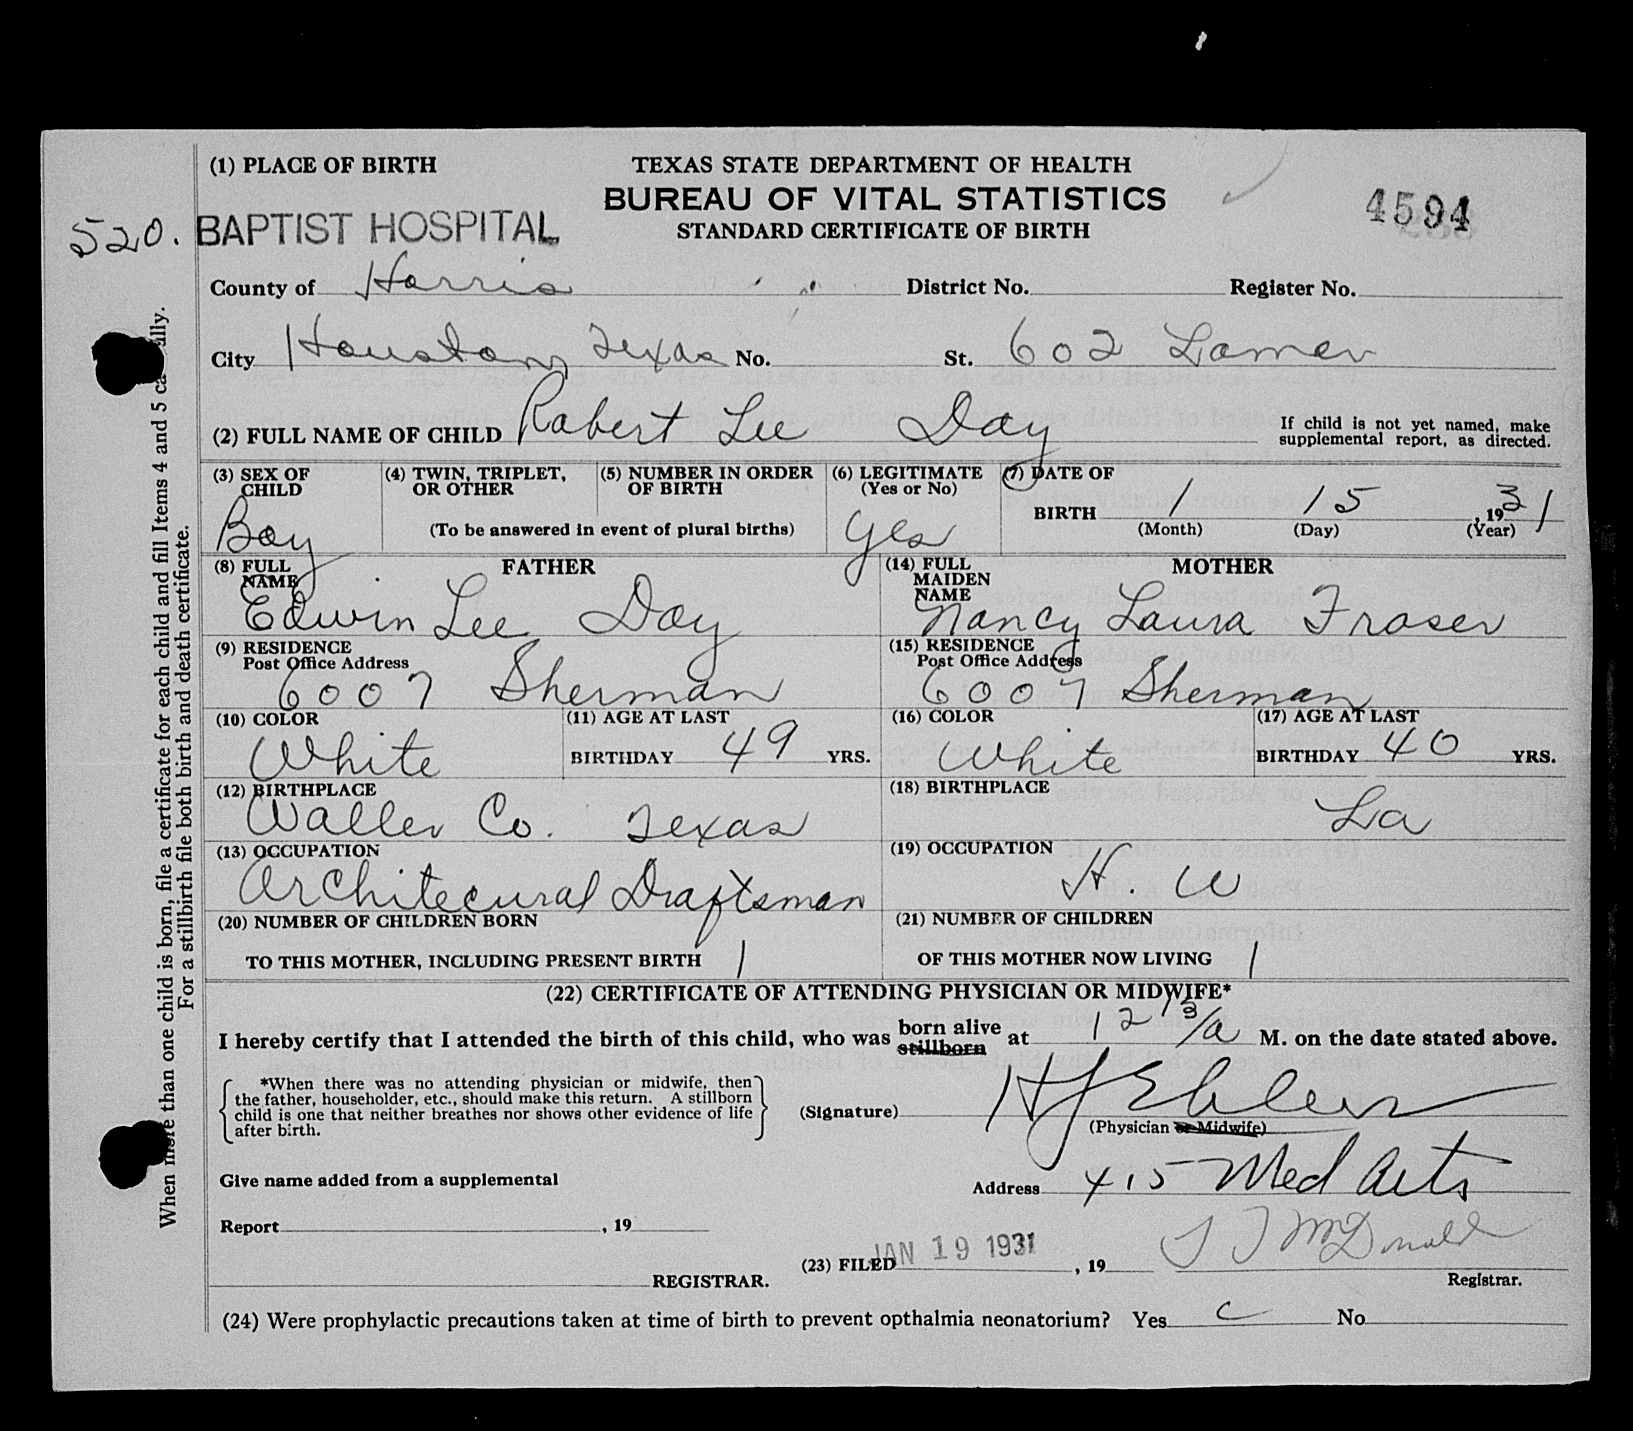 (1) PLACE OF BIRTH
TEXAS STATE DEPARTMENT OF HEALTH
BUREAU OF VITAL STATISTICS
STANDARD CERTIFICATE OF BIRTH
4594
520. BAPTIST HOSPITAL
County of Harris District No. Register No.
City Houston, Texas No. St. 602 Lamar
(2) FULL NAME OF CHILD Robert Lee Day
If child is not yet named, make
supplemental report, as directed.
(3) SEX OF CHILD Boy
(4) TWIN, TRIPLET, OR OTHER
(5) NUMBER IN ORDER OF BIRTH
(To be answered in event of plural births)
(6) LEGITIMATE (Yes or No) Yes
(7) DATE OF
BIRTH 1 15, 1931
(Month) (Day) (Year)
(8) FULL NAME FATHER
Edwin Lee Day
(14) FULL MAIDEN NAME MOTHER
Nancy Laura Fraser
(9) RESIDENCE
Post Office Address
6007 Sherman
(15) RESIDENCE
Post Office Address
6007 Sherman
(10) COLOR
White
(11) AGE AT LAST
BIRTHDAY 49 YRS.
(16) COLOR
White
(17) AGE AT LAST
BIRTHDAY 40 YRS.
(12) BIRTHPLACE
Waller Co. Texas
(18) BIRTHPLACE
La
(13) OCCUPATION
Architecural Draftsman
(19) OCCUPATION
H. W
(20) NUMBER OF CHILDREN BORN
TO THIS MOTHER, INCLUDING PRESENT BIRTH 1
(21) NUMBER OF CHILDREN
OF THIS MOTHER NOW LIVING 1
(22) CERTIFICATE OF ATTENDING PHYSICIAN OR MIDWIFE*
I hereby certify that I attended the birth of this child, who was born alive stillborn at 12 13/a M. on the date stated above.
*When there was no attending physician or midwife, then
the father, householder, etc., should make this return. A stillborn
child is one that neither breathes nor shows other evidence of life
after birth.
(Signature)
(Physician or Midwife)
Give name added from a supplemental
Address 415 Med Arts
Report , 19
(23) FILED JAN 19 1931, 19 McDonald
REGISTRAR.
Registrar.
(24) Were prophylactic precautions taken at time of birth to prevent opthalmia neonatorium? Yes No
When more than one child is born, file a certificate for each child and fill Items 4 and 5 carefully.
For a stillbirth file both birth and death certificate.